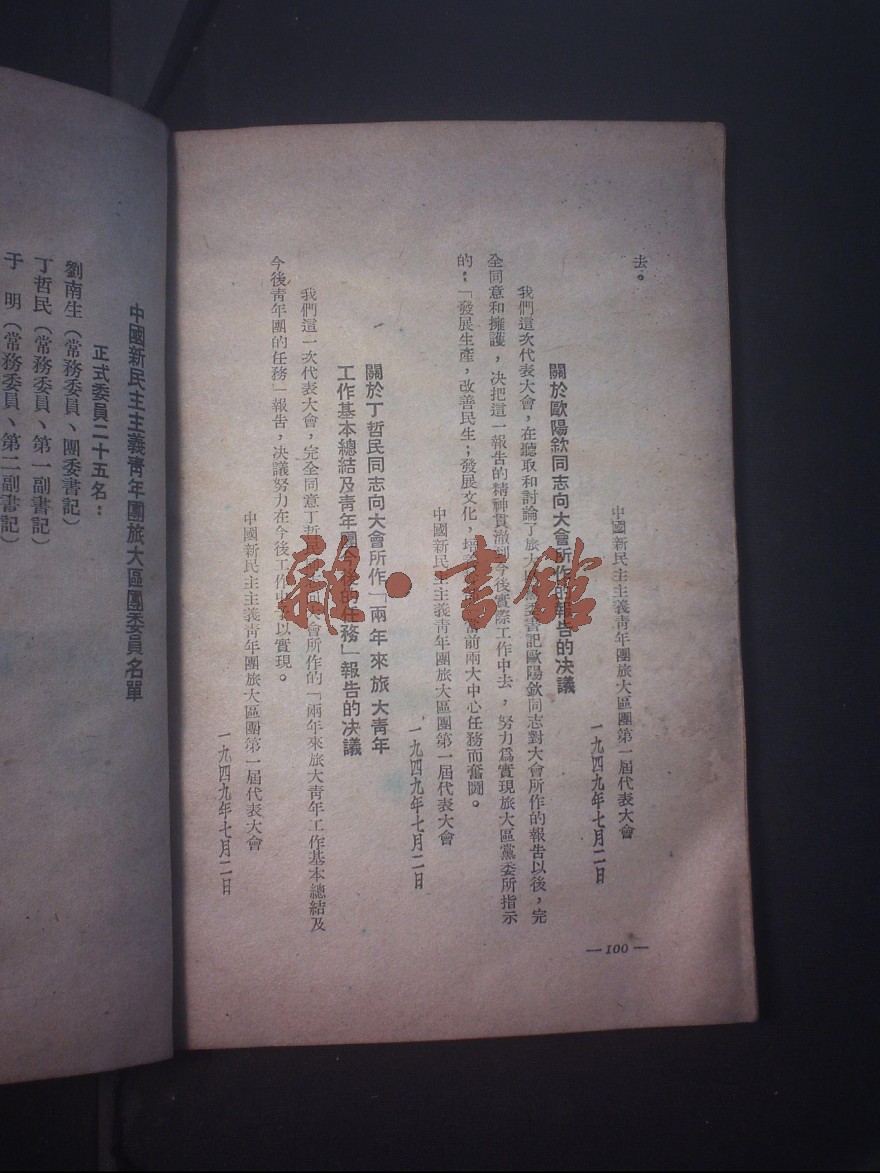 去。
中國新民主主義靑年團旅大區團第一屆代表大會
一九四九年七月二日
關於歐陽欽同志向大會所作的報告的决議
我們這次代表大會，在聽取和討論了旅大委書記歐陽欽同志對大會所作的報告以後，完
全同意和擁護，决把這一報告的精神貫澈到今後實際工作中去，努力爲實現旅大區黨委所指示
的：「發展生產，改善民生；發展文化，培當前兩大中心任務而奮鬪。
中國新民主主義靑年團旅大區團第一屆代表大會
一九四九年七月二日
關於丁哲民同志向大會所作「兩年來旅大靑年
工作基本總結及靑年團今後的任務」報告的决議
我們這一次代表大會，完全同意丁哲民向大會所作的「兩年來旅大靑年工作基本總結及
今後靑年團的任務」報告，决議努力在今後工作中予以實現。
中國新民主主義靑年團旅大區團第一屆代表大會
一九四九年七月二日
— 100 —
中國新民主主義靑年團旅大區團委員名單
正式委員二十五名：
劉南生（常務委員、團委書記）
丁哲民（常務委員、第一副書記）
于　明（常務委員、第二副書記）
雜·書館